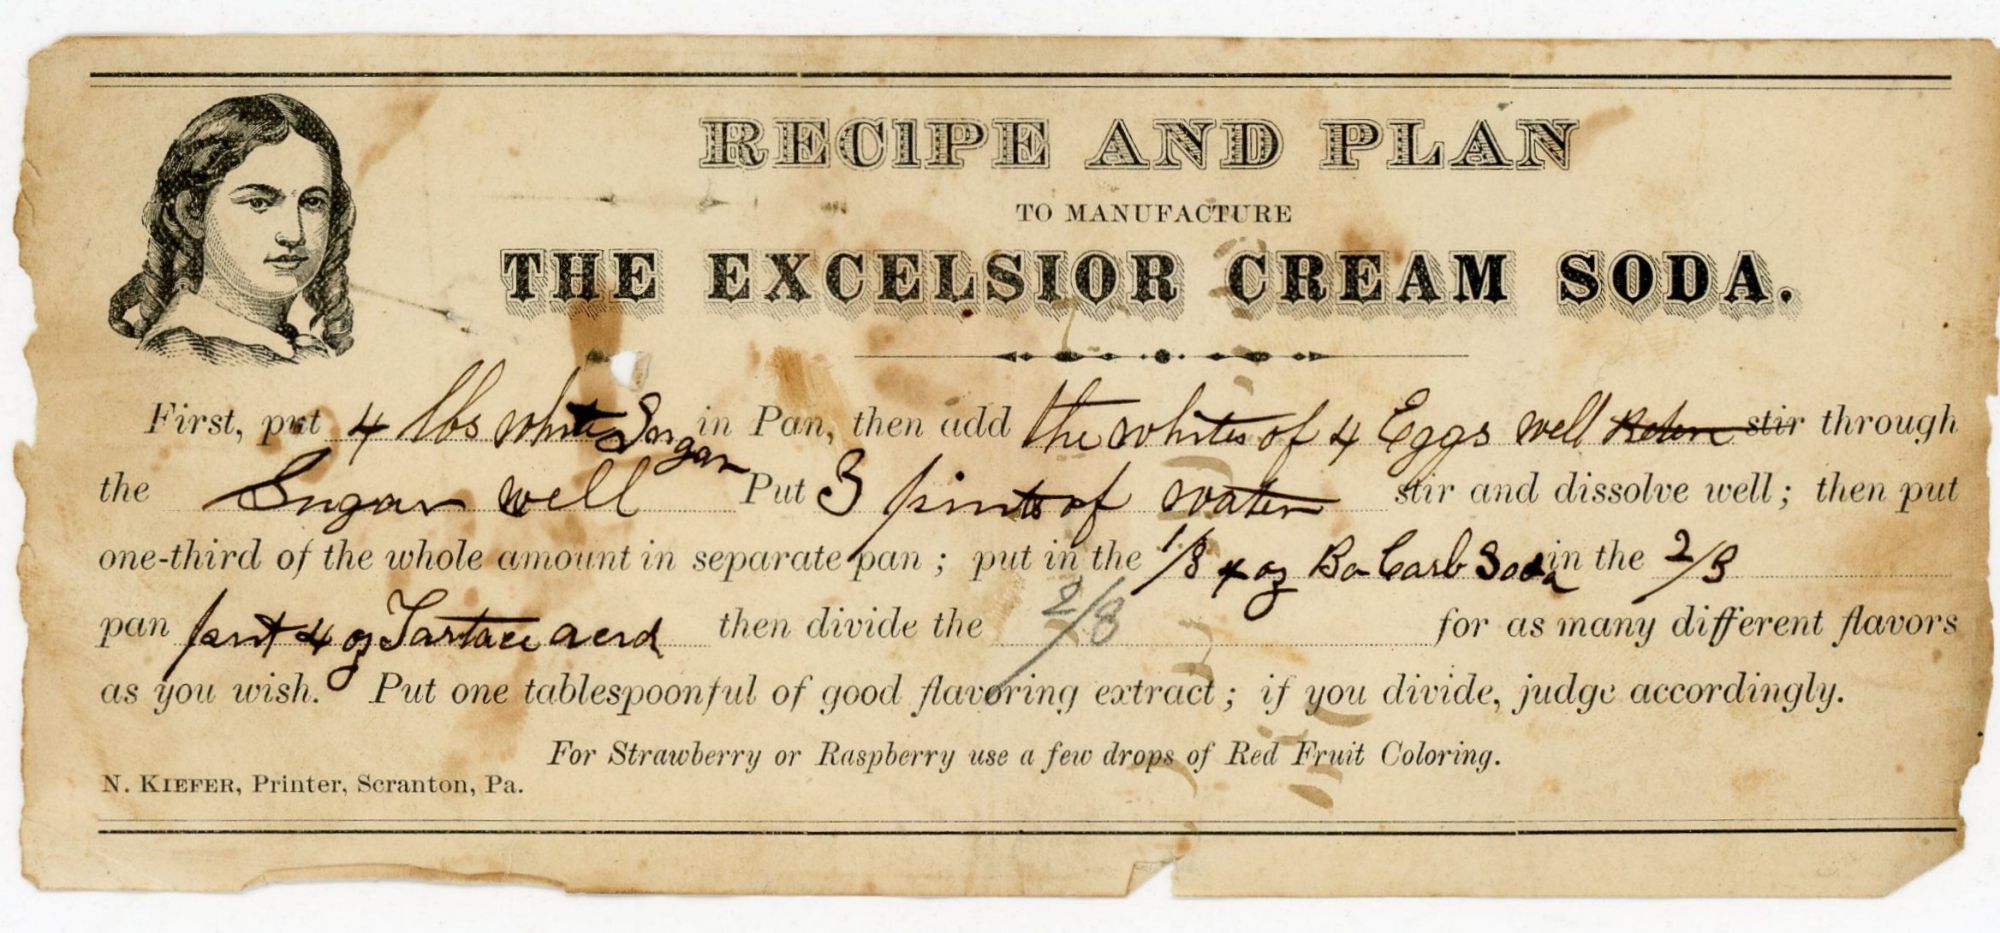 RECIPE AND PLAN
TO MANUFACTURE
THE EXCELSIOR CREAM SODA.
First, put 4 lbs white Sugar in Pan, then add the whites of 4 Eggs well stir through
the Sugar well Put 3 pints of water stir and dissolve well; then put
one-third of the whole amount in separate pan; put in the 1/3 4 oz Carb Soda in the 2/3
pan put 4 oz acid then divide the 2/3 for as many different flavors
as you wish. Put one tablespoonful of good flavoring extract; if you divide, judge accordingly.
For Strawberry or Raspberry use a few drops of Red Fruit Coloring.
N. KIEFER, Printer, Scranton, Pa.